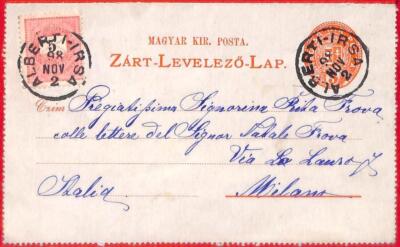 MAGYAR KIR. POSTA.
ZÁRT-LEVELEZŐ-LAP.
ALBERTI-IRSA
98
NOV
2
ALBERTI-IRSA
98
NOV
2
Czim Pregiatissima Signorina Rita Frova
colle lettere del Signor Natale Frova
Via La Lauro 7
Italia Milano